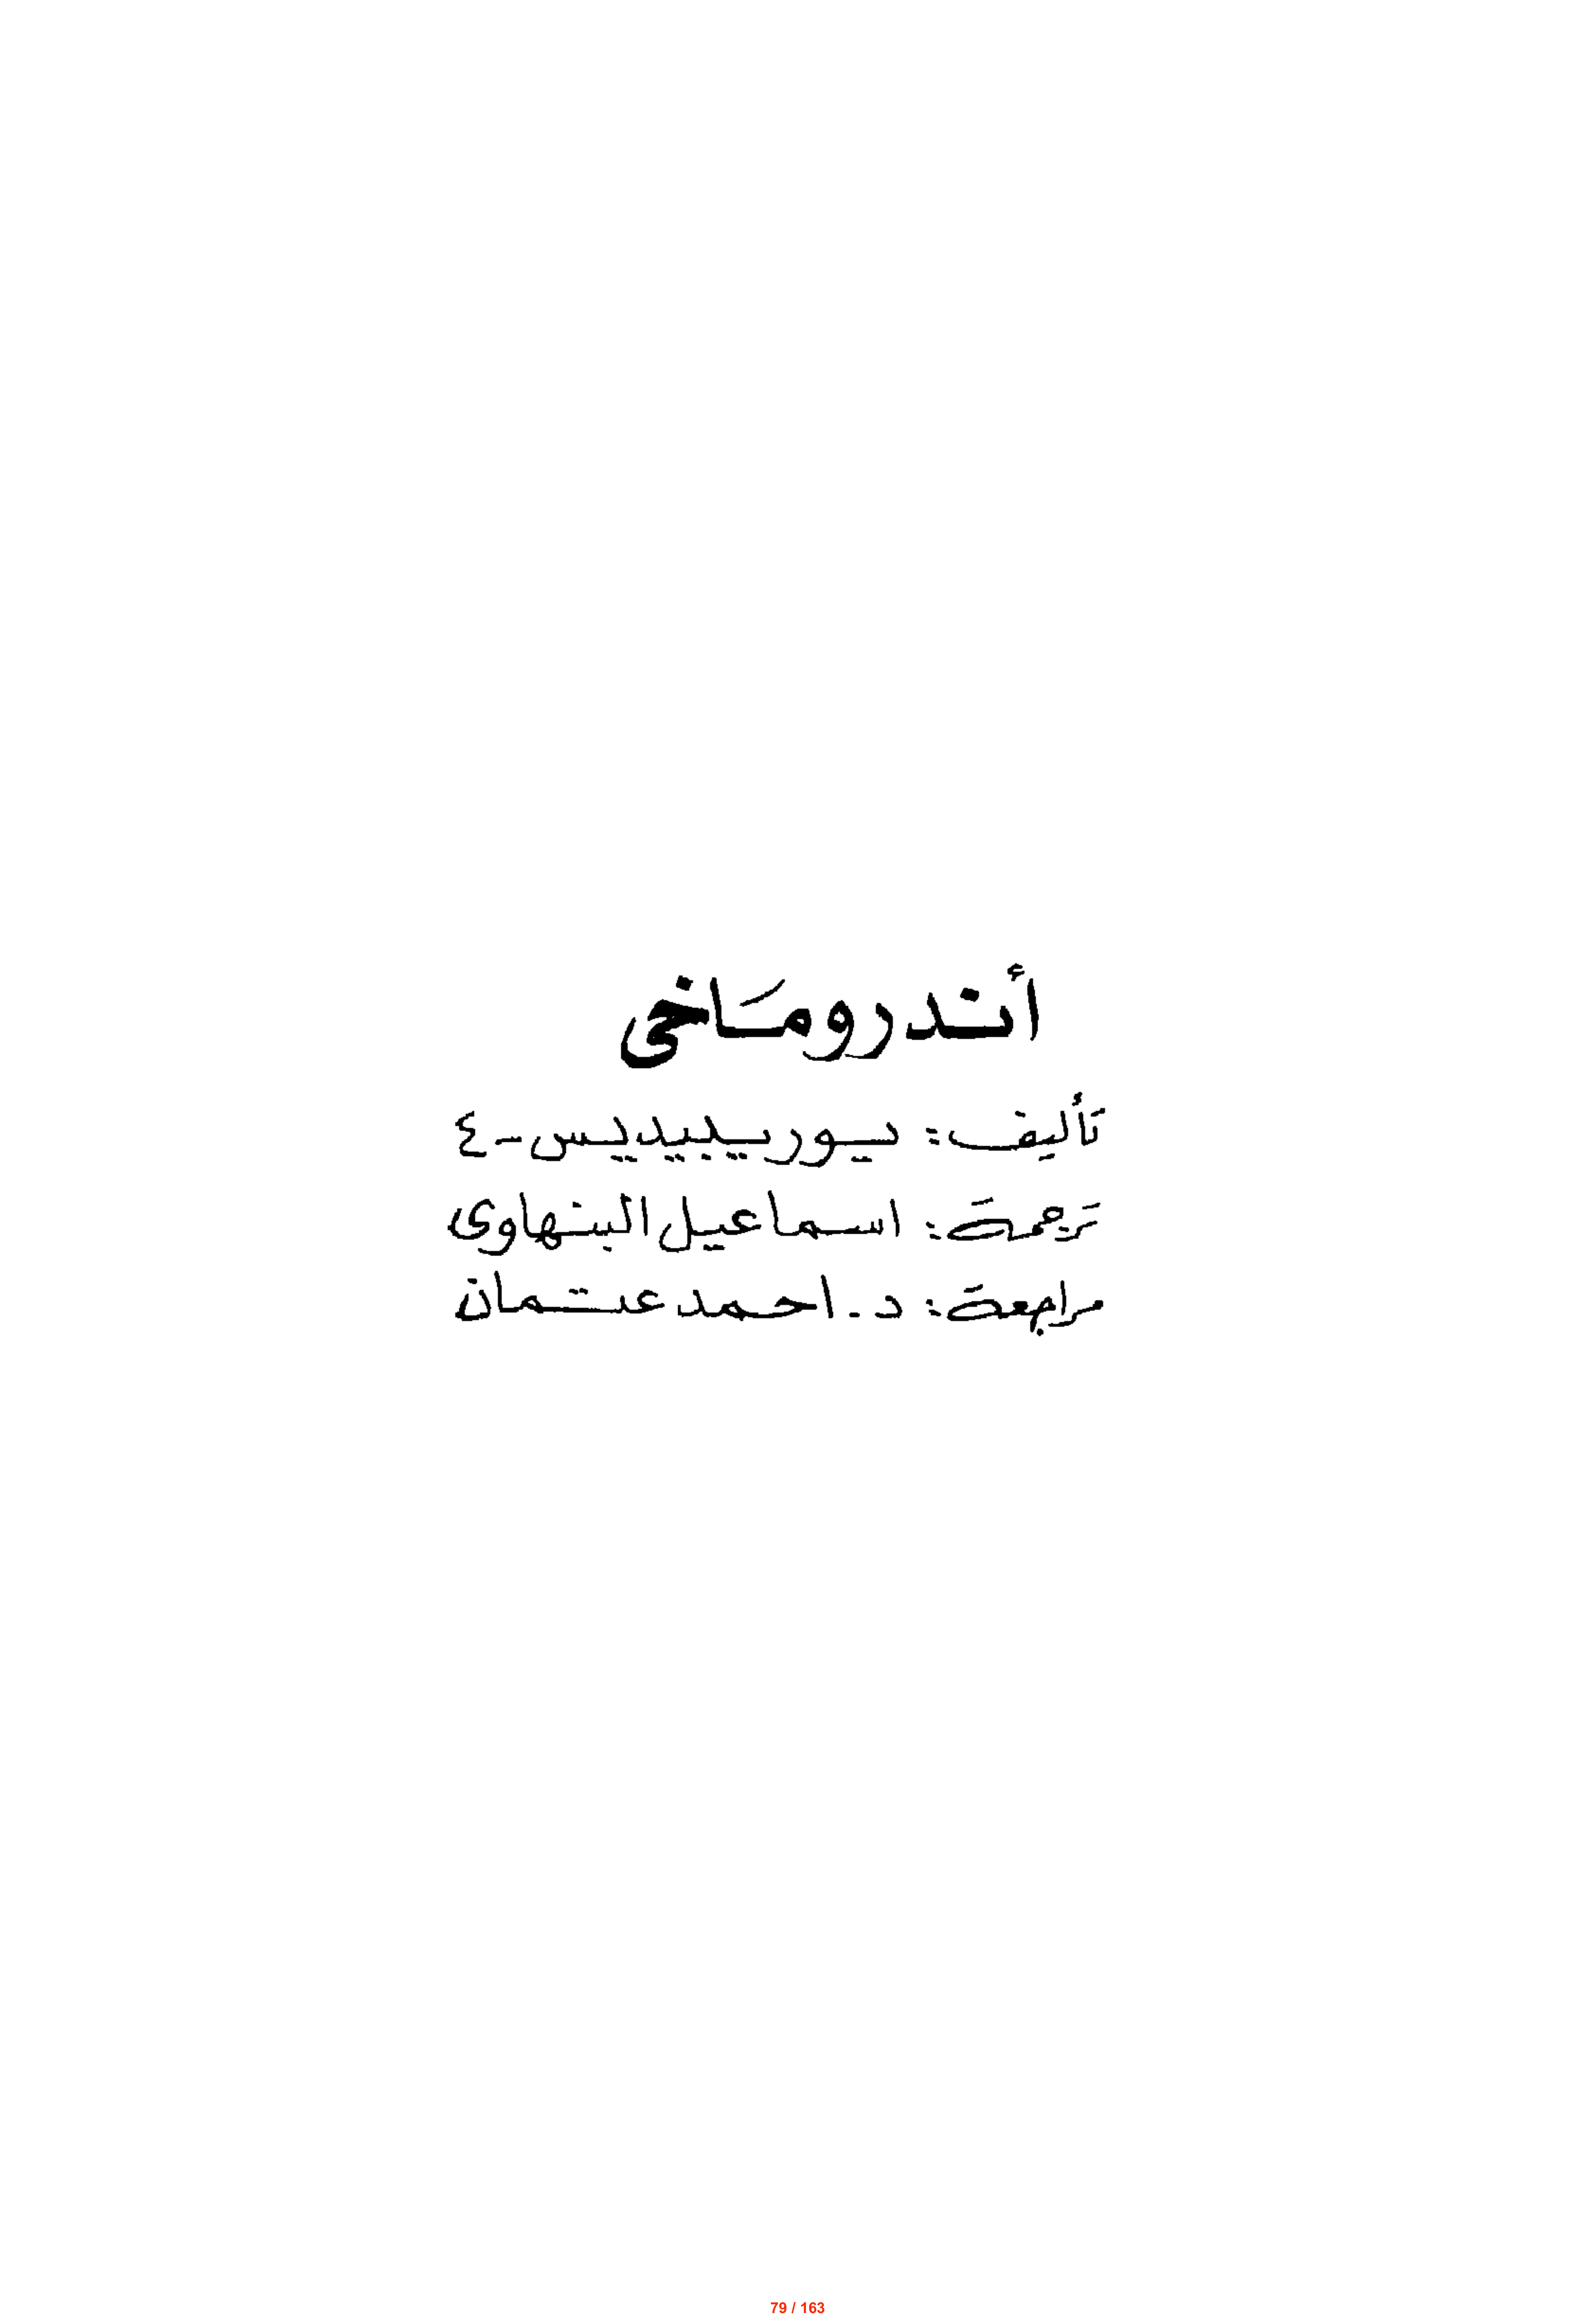 أندرومَاخى
تأليف: يوريبيديس-٤
ترجمة: اسماعيل البنهاوى
مراجعة: د. احمد عتمان
79 / 163